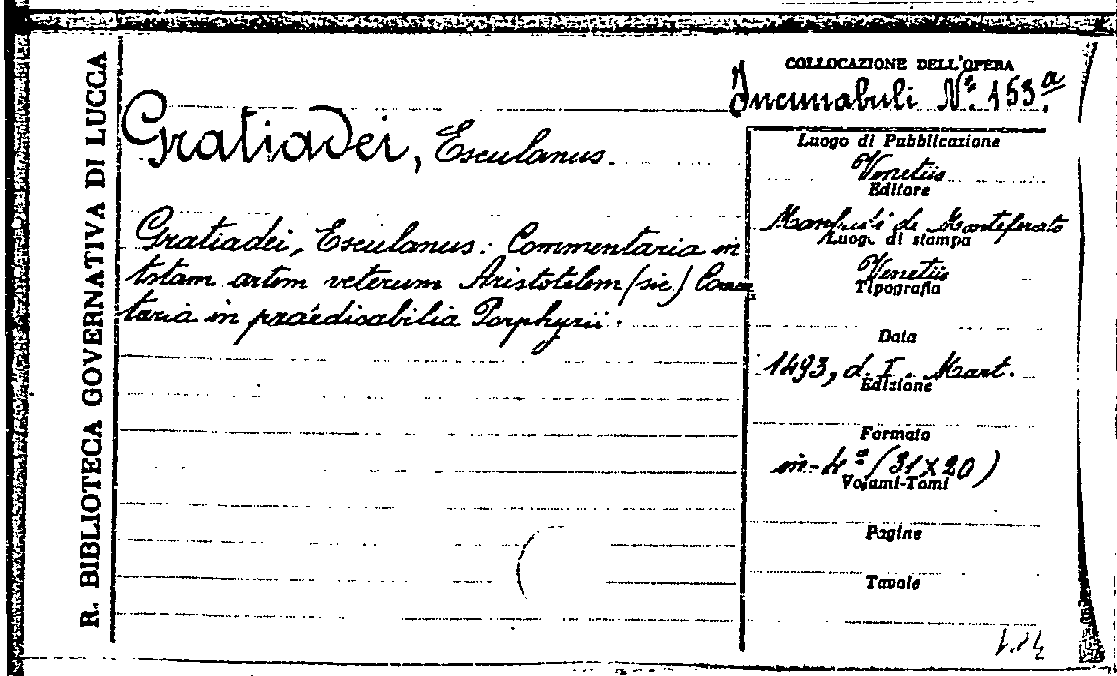 R. BIBLIOTECA GOVERNATIVA DI LUCCA
Gratiadei, Esculanus.
Gratiadei, Esculanus: Commentaria in
totam artem veterum Aristotelem (sic) Comen
taria in praedicabilia Porphyrii.
COLLOCAZIONE DELL'OPERA
Incunabuli Nº. 153.a
Luogo di Pubblicazione
Venetiis
Editore
Manfredi de Monteferato
Luogo di stampa
Venetiis
Tipografia
Data
1493, d. I. Mart.
Edizione
Formato
in-4º (31x20)
Volumi-Tomi
Pagine
Tavole